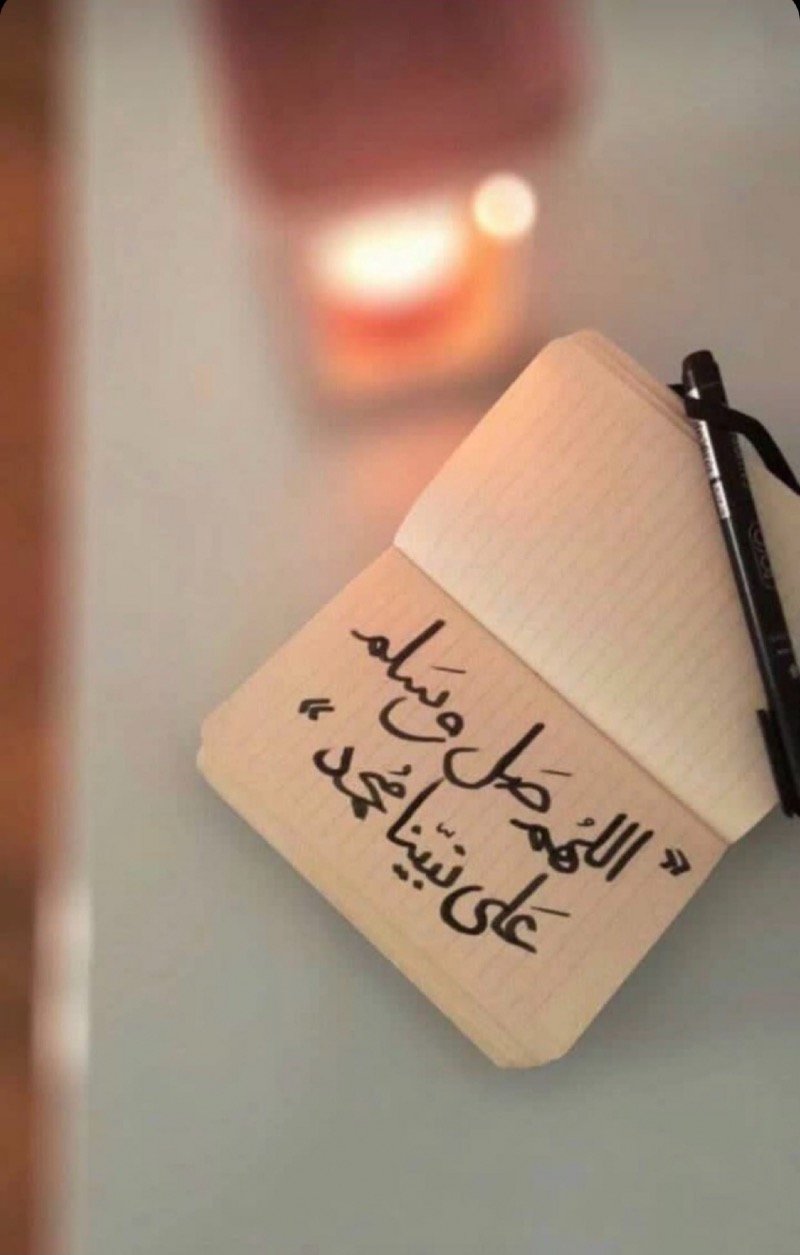 « اللهُم صَل وسَلم
عَلى نبيّنا مُحمد »